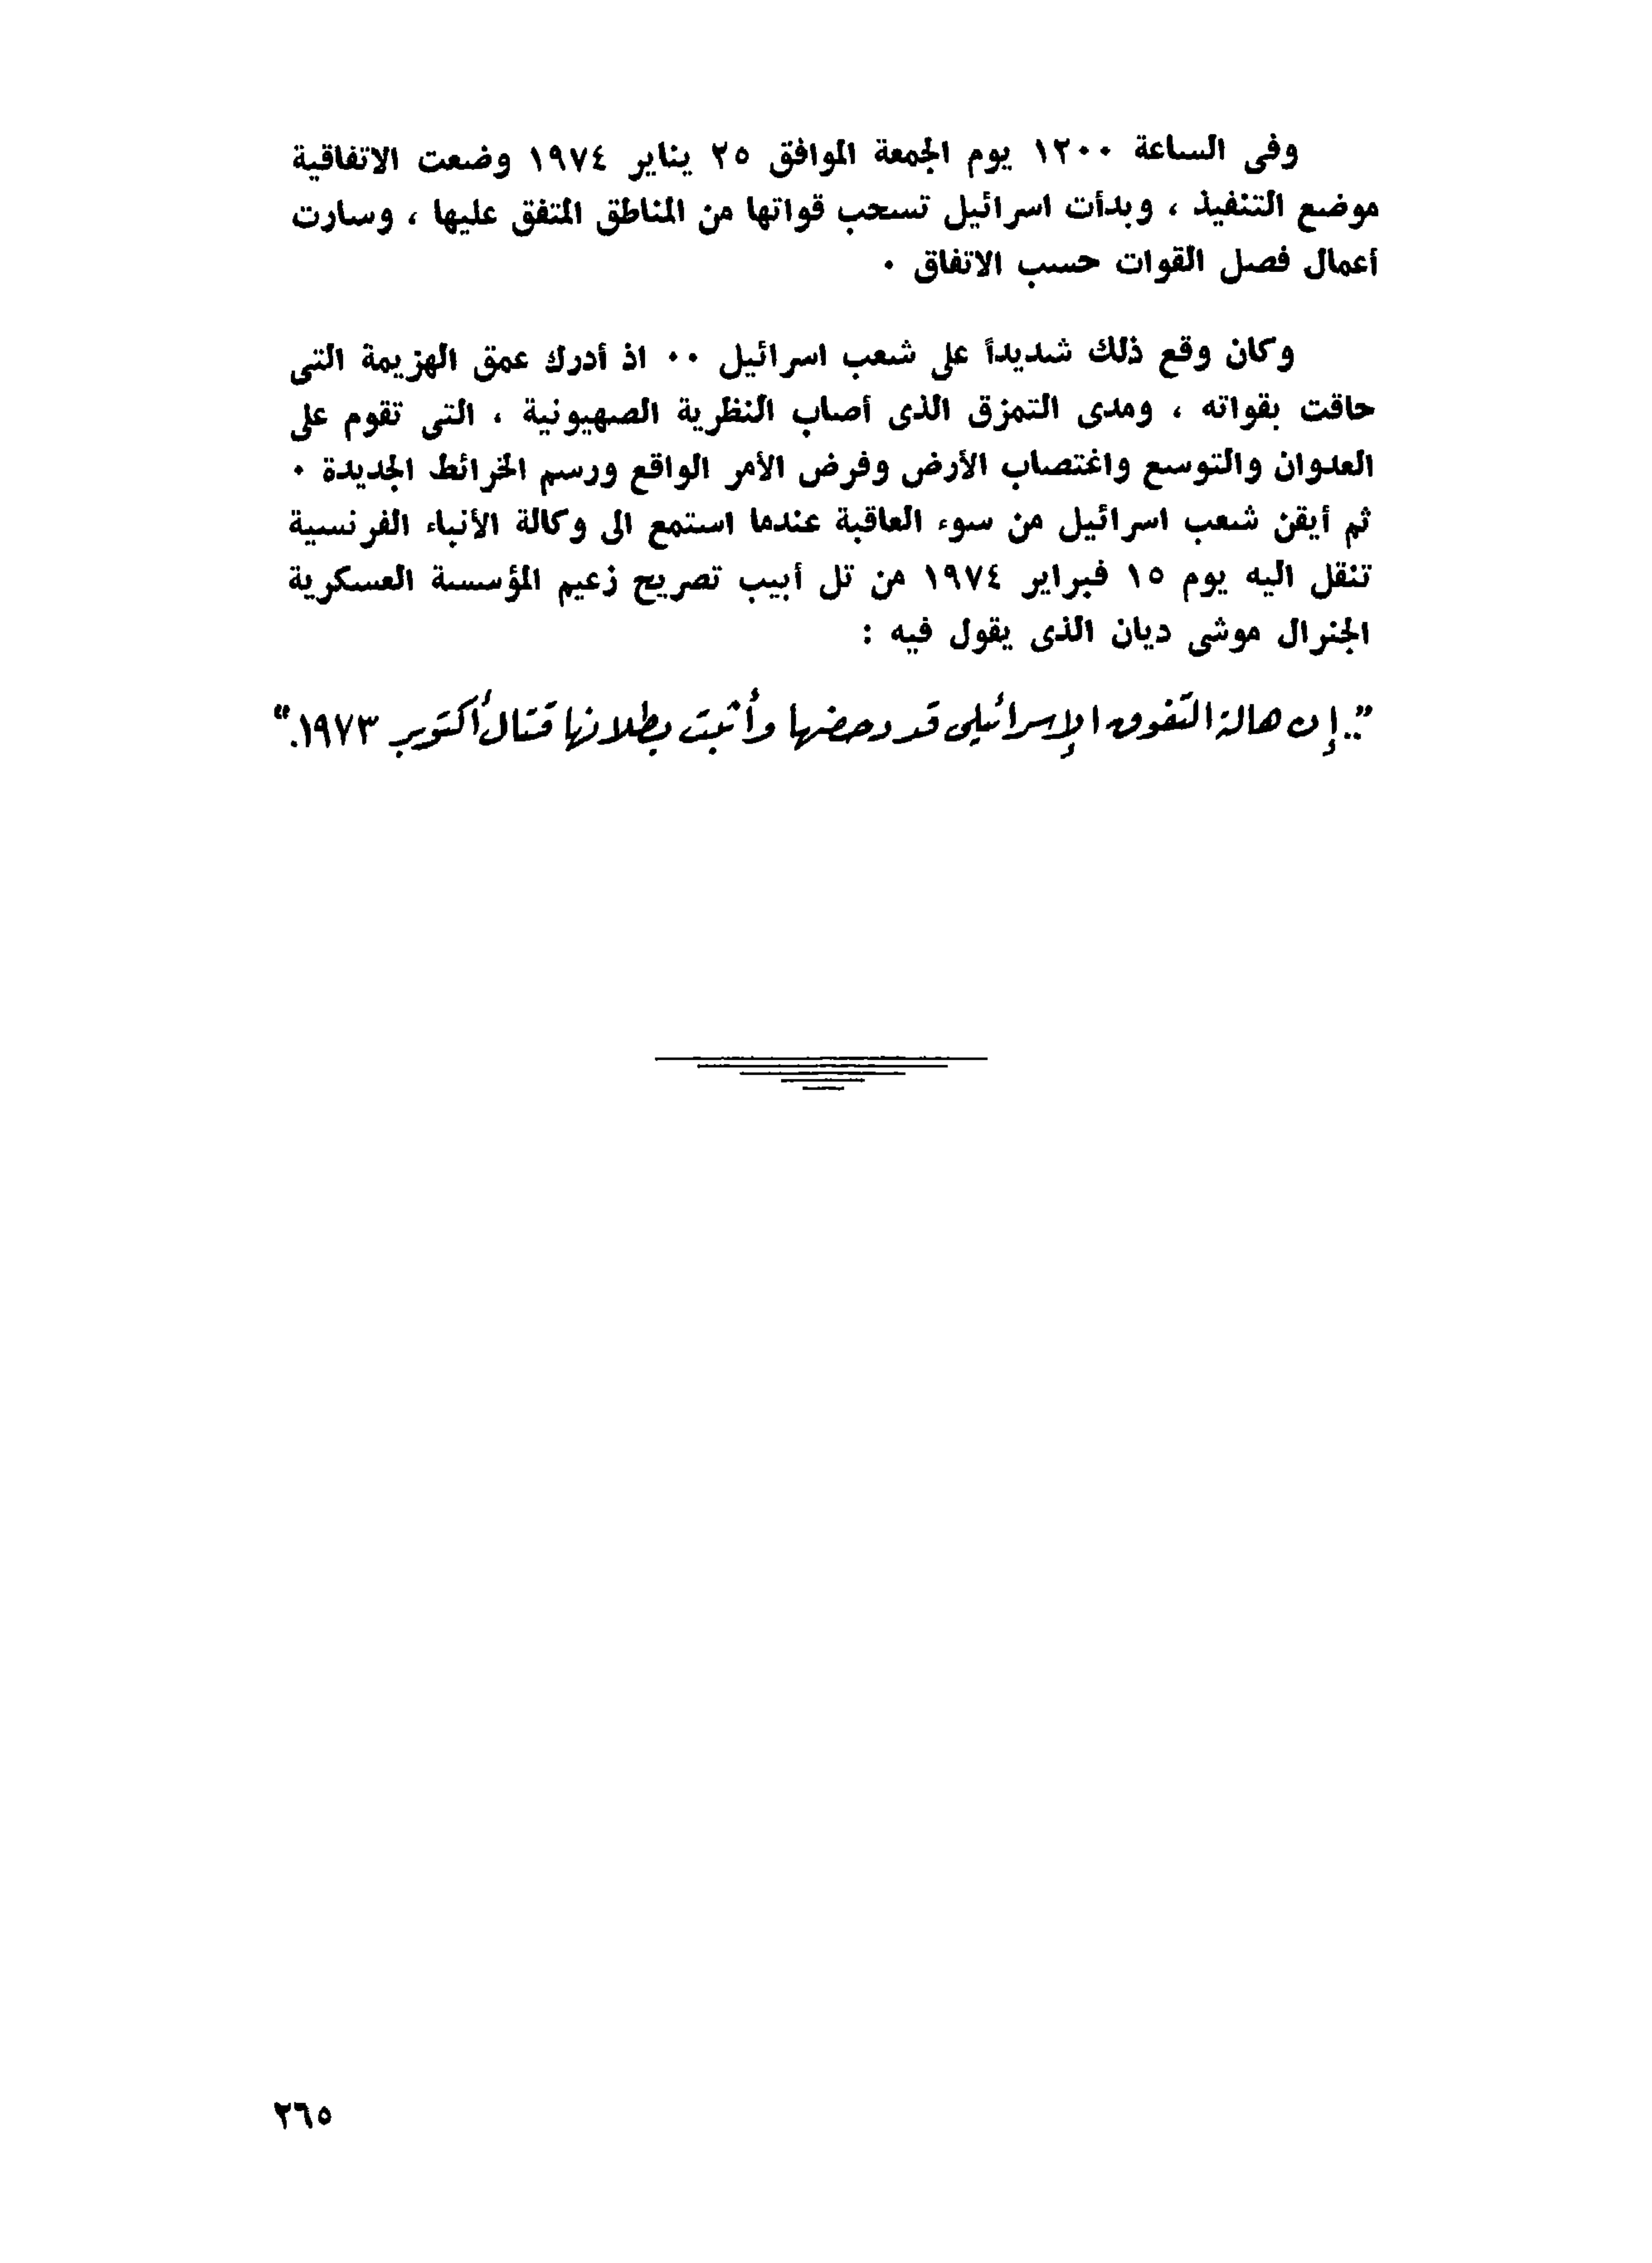 وفى الساعة ١٢٠٠ يوم الجمعة الموافق ٢٥ يناير ١٩٧٤ وضعت الاتفاقية
موضع التنفيذ ، وبدأت اسرائيل تسحب قواتها من المناطق المتفق عليها ، وسارت
أعمال فصل القوات حسب الاتفاق ٠
وكان وقع ذلك شديداً على شعب اسرائيل ٠٠ اذ أدرك عمق الهزيمة التى
حاقت بقواته ، ومدى التمزق الذى أصاب النظرية الصهيونية ، التى تقوم على
العدوان والتوسع واغتصاب الأرض وفرض الأمر الواقع ورسم الخرائط الجديدة ٠
ثم أيقن شعب اسرائيل من سوء العاقبة عندما استمع الى وكالة الأنباء الفرنسية
تنقل اليه يوم ١٥ فبراير ١٩٧٤ من تل أبيب تصريح زعيم المؤسسة العسكرية
الجنرال موشى ديان الذى يقول فيه :
”.. إن هالة التفوق الإسرائيلى قد دحضها وأثبت بطلانها قتال أكتوبر ١٩٧٣.“
٢٦٥